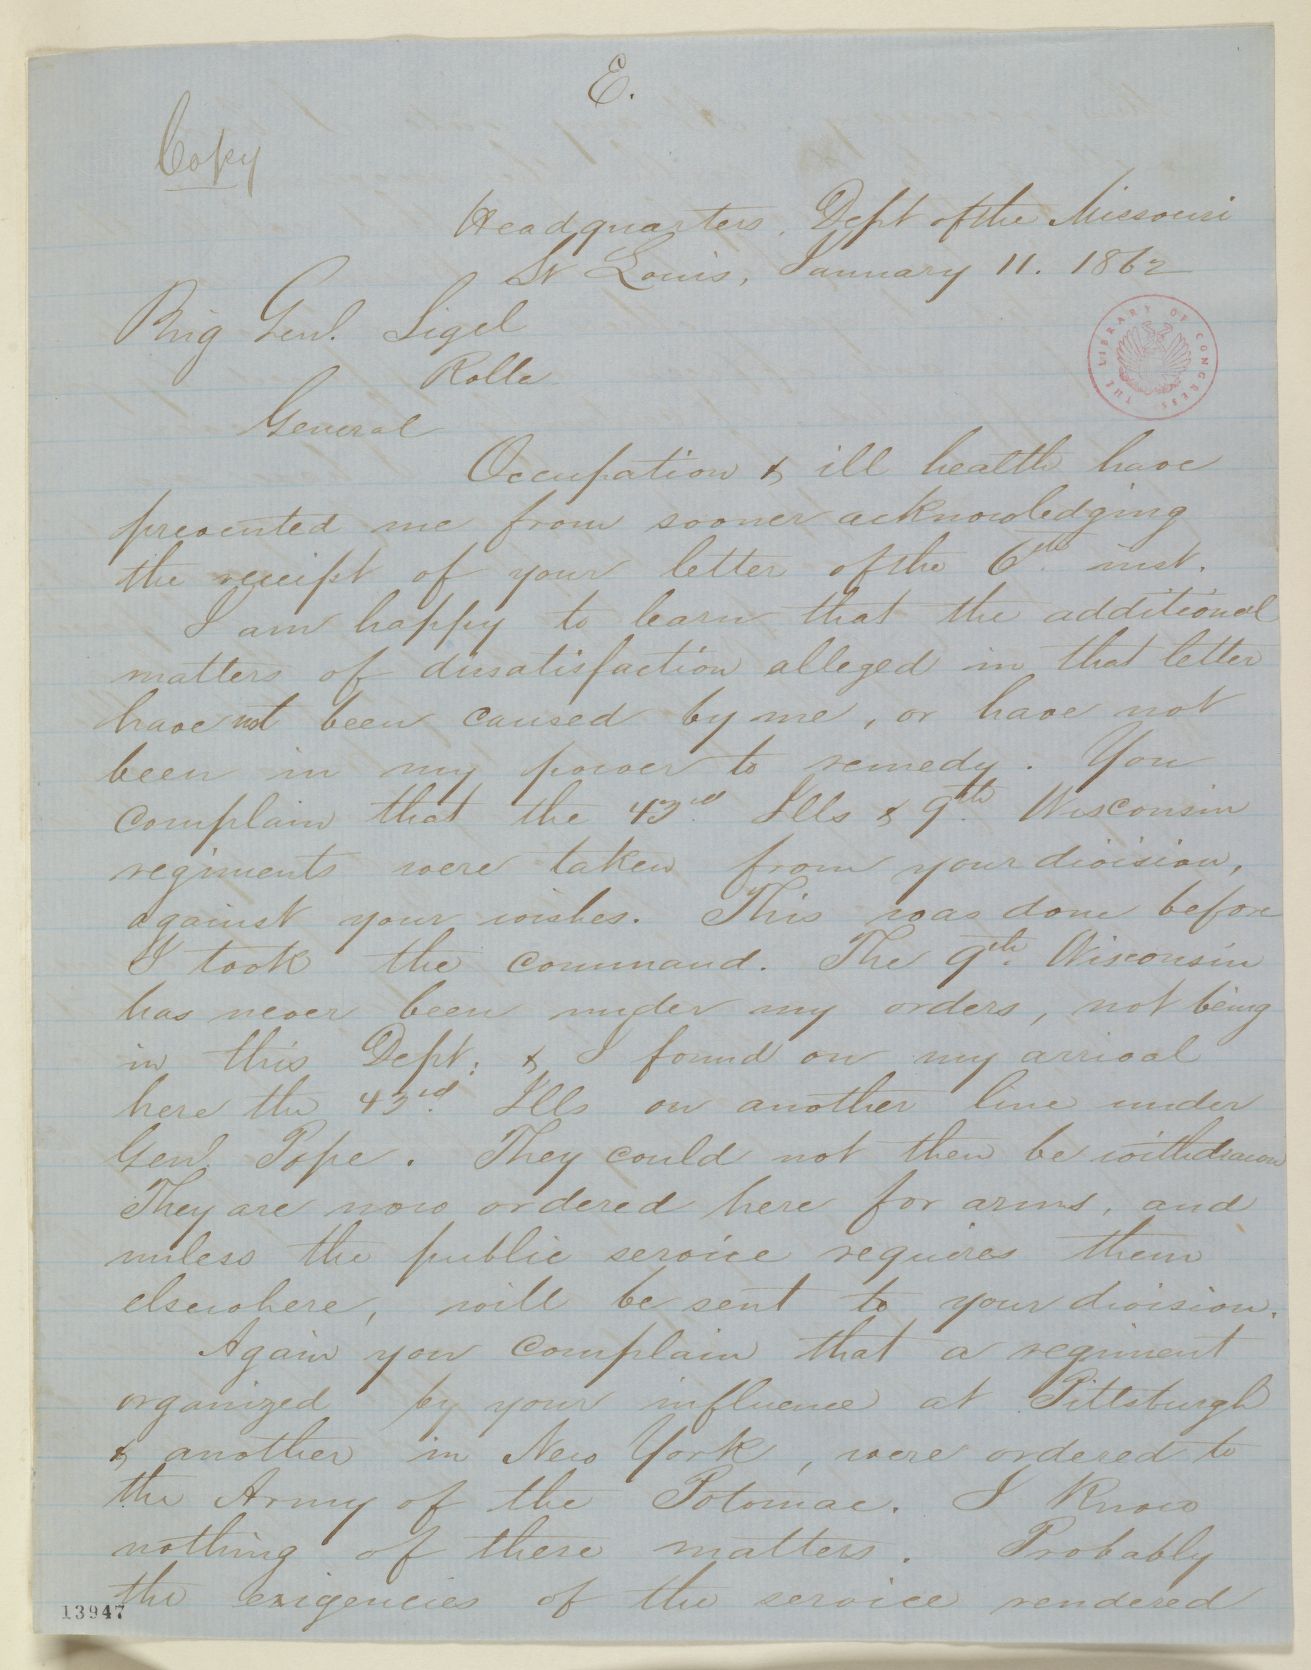 E.
Copy
Headquarters, Dept of the Missouri
St Louis, January 11. 1862
Brig Genl. Sigel
Rolla
THE LIBRARY OF CONGRESS
General
Occupation & ill health have
prevented me from sooner acknowledging
the receipt of your letter of the 6th inst.
I am happy to learn that the additional
matters of dissatisfaction alleged in that letter
have not been caused by me, or have not
been in my power to remedy. You
complain that the 43rd. Ills & 9th. Wisconsin
regiments were taken from your division,
against your wishes. This was done before
I took the command. The 9th. Wisconsin
has never been under my orders, not being
in this Dept; & I found on my arrival
here the 43rd. Ills on another line under
Genl. Pope. They could not then be withdrawn
They are now ordered here for arms, and
unless the public service requires them
elsewhere, will be sent to your division.
Again you complain that a regiment
organized by your influence at Pittsburgh
& another in New York, were ordered to
the Army of the Potomac. I know
nothing of these matters. Probably
the exigencies of the service rendered
13947